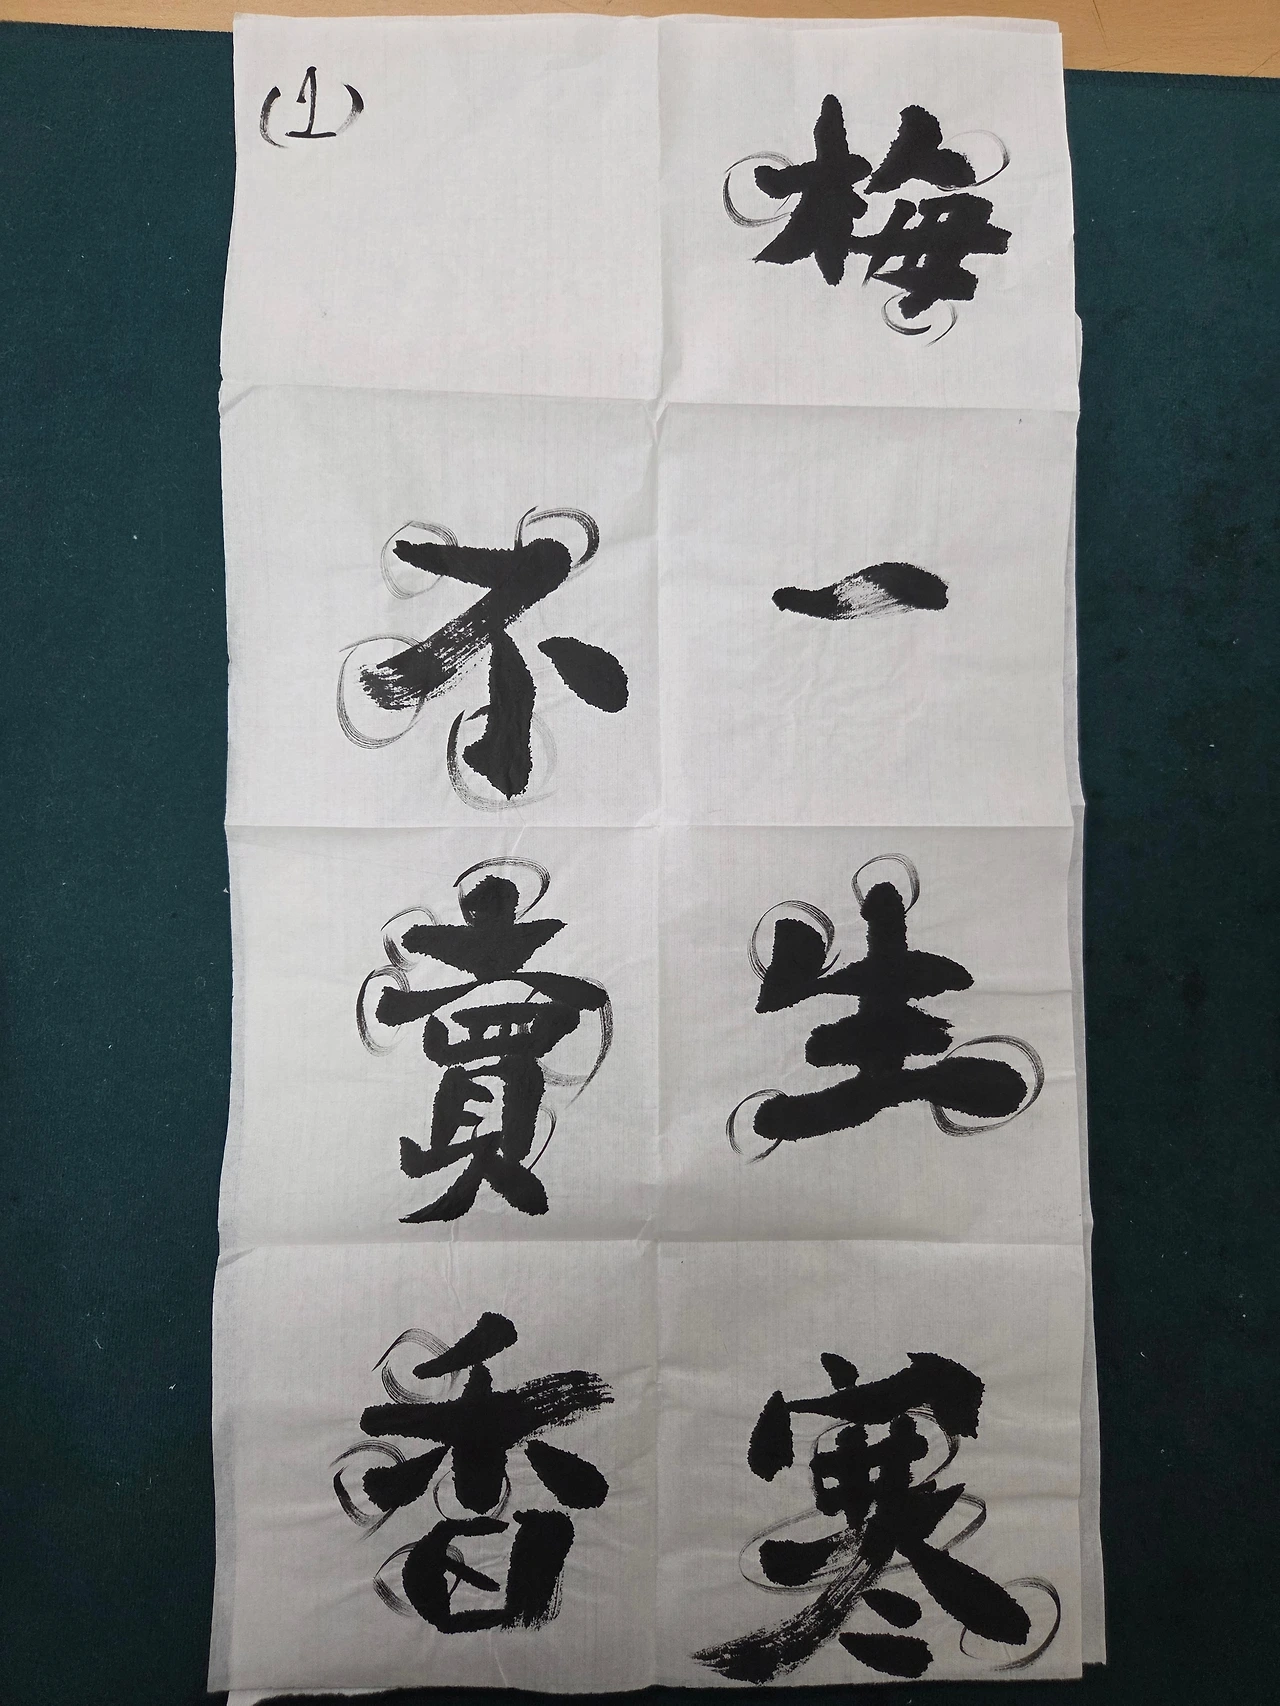 (1)
梅一生寒
不賣香